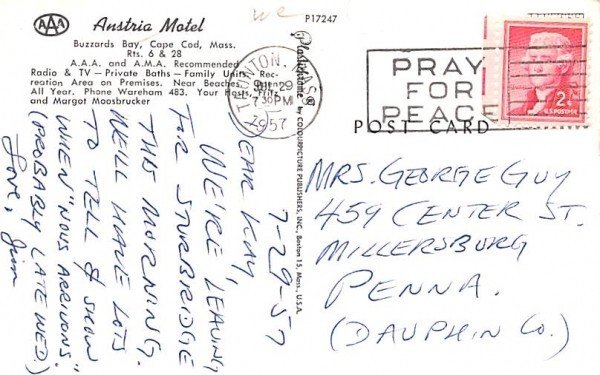 AAA
Anstria Motel
Buzzards Bay, Cape Cod, Mass.
Rts. 6 & 28
A.A.A. and A.M.A. Recommended
Radio & TV — Private Baths — Family Units, Rec-
reation Area on Premises. Near Beaches. Open
All Year. Phone Wareham 483. Your Hosts, Fritz
and Margot Moosbrucker
we
P17247
Plastichrome by COLOURPICTURE PUBLISHERS, INC., Boston 15, Mass., U.S.A.
TAUNTON, MASS
JUL 29
7 30 PM
1957
PRAY
FOR
PEACE
2¢
U.S. POSTAGE
POST CARD
7-29-57
DEAR KAY,
WE'RE LEAVING
FOR STURBRIDGE
THIS MORNING.
WE'LL HAVE LOTS
TO TELL & SHOW
WHEN "NOUS ARRIVONS."
(PROBABLY LATE WED.)
Love, Jim
MRS. GEORGE GUY
459 CENTER ST.
MILLERSBURG
PENNA.
(DAUPHIN CO.)